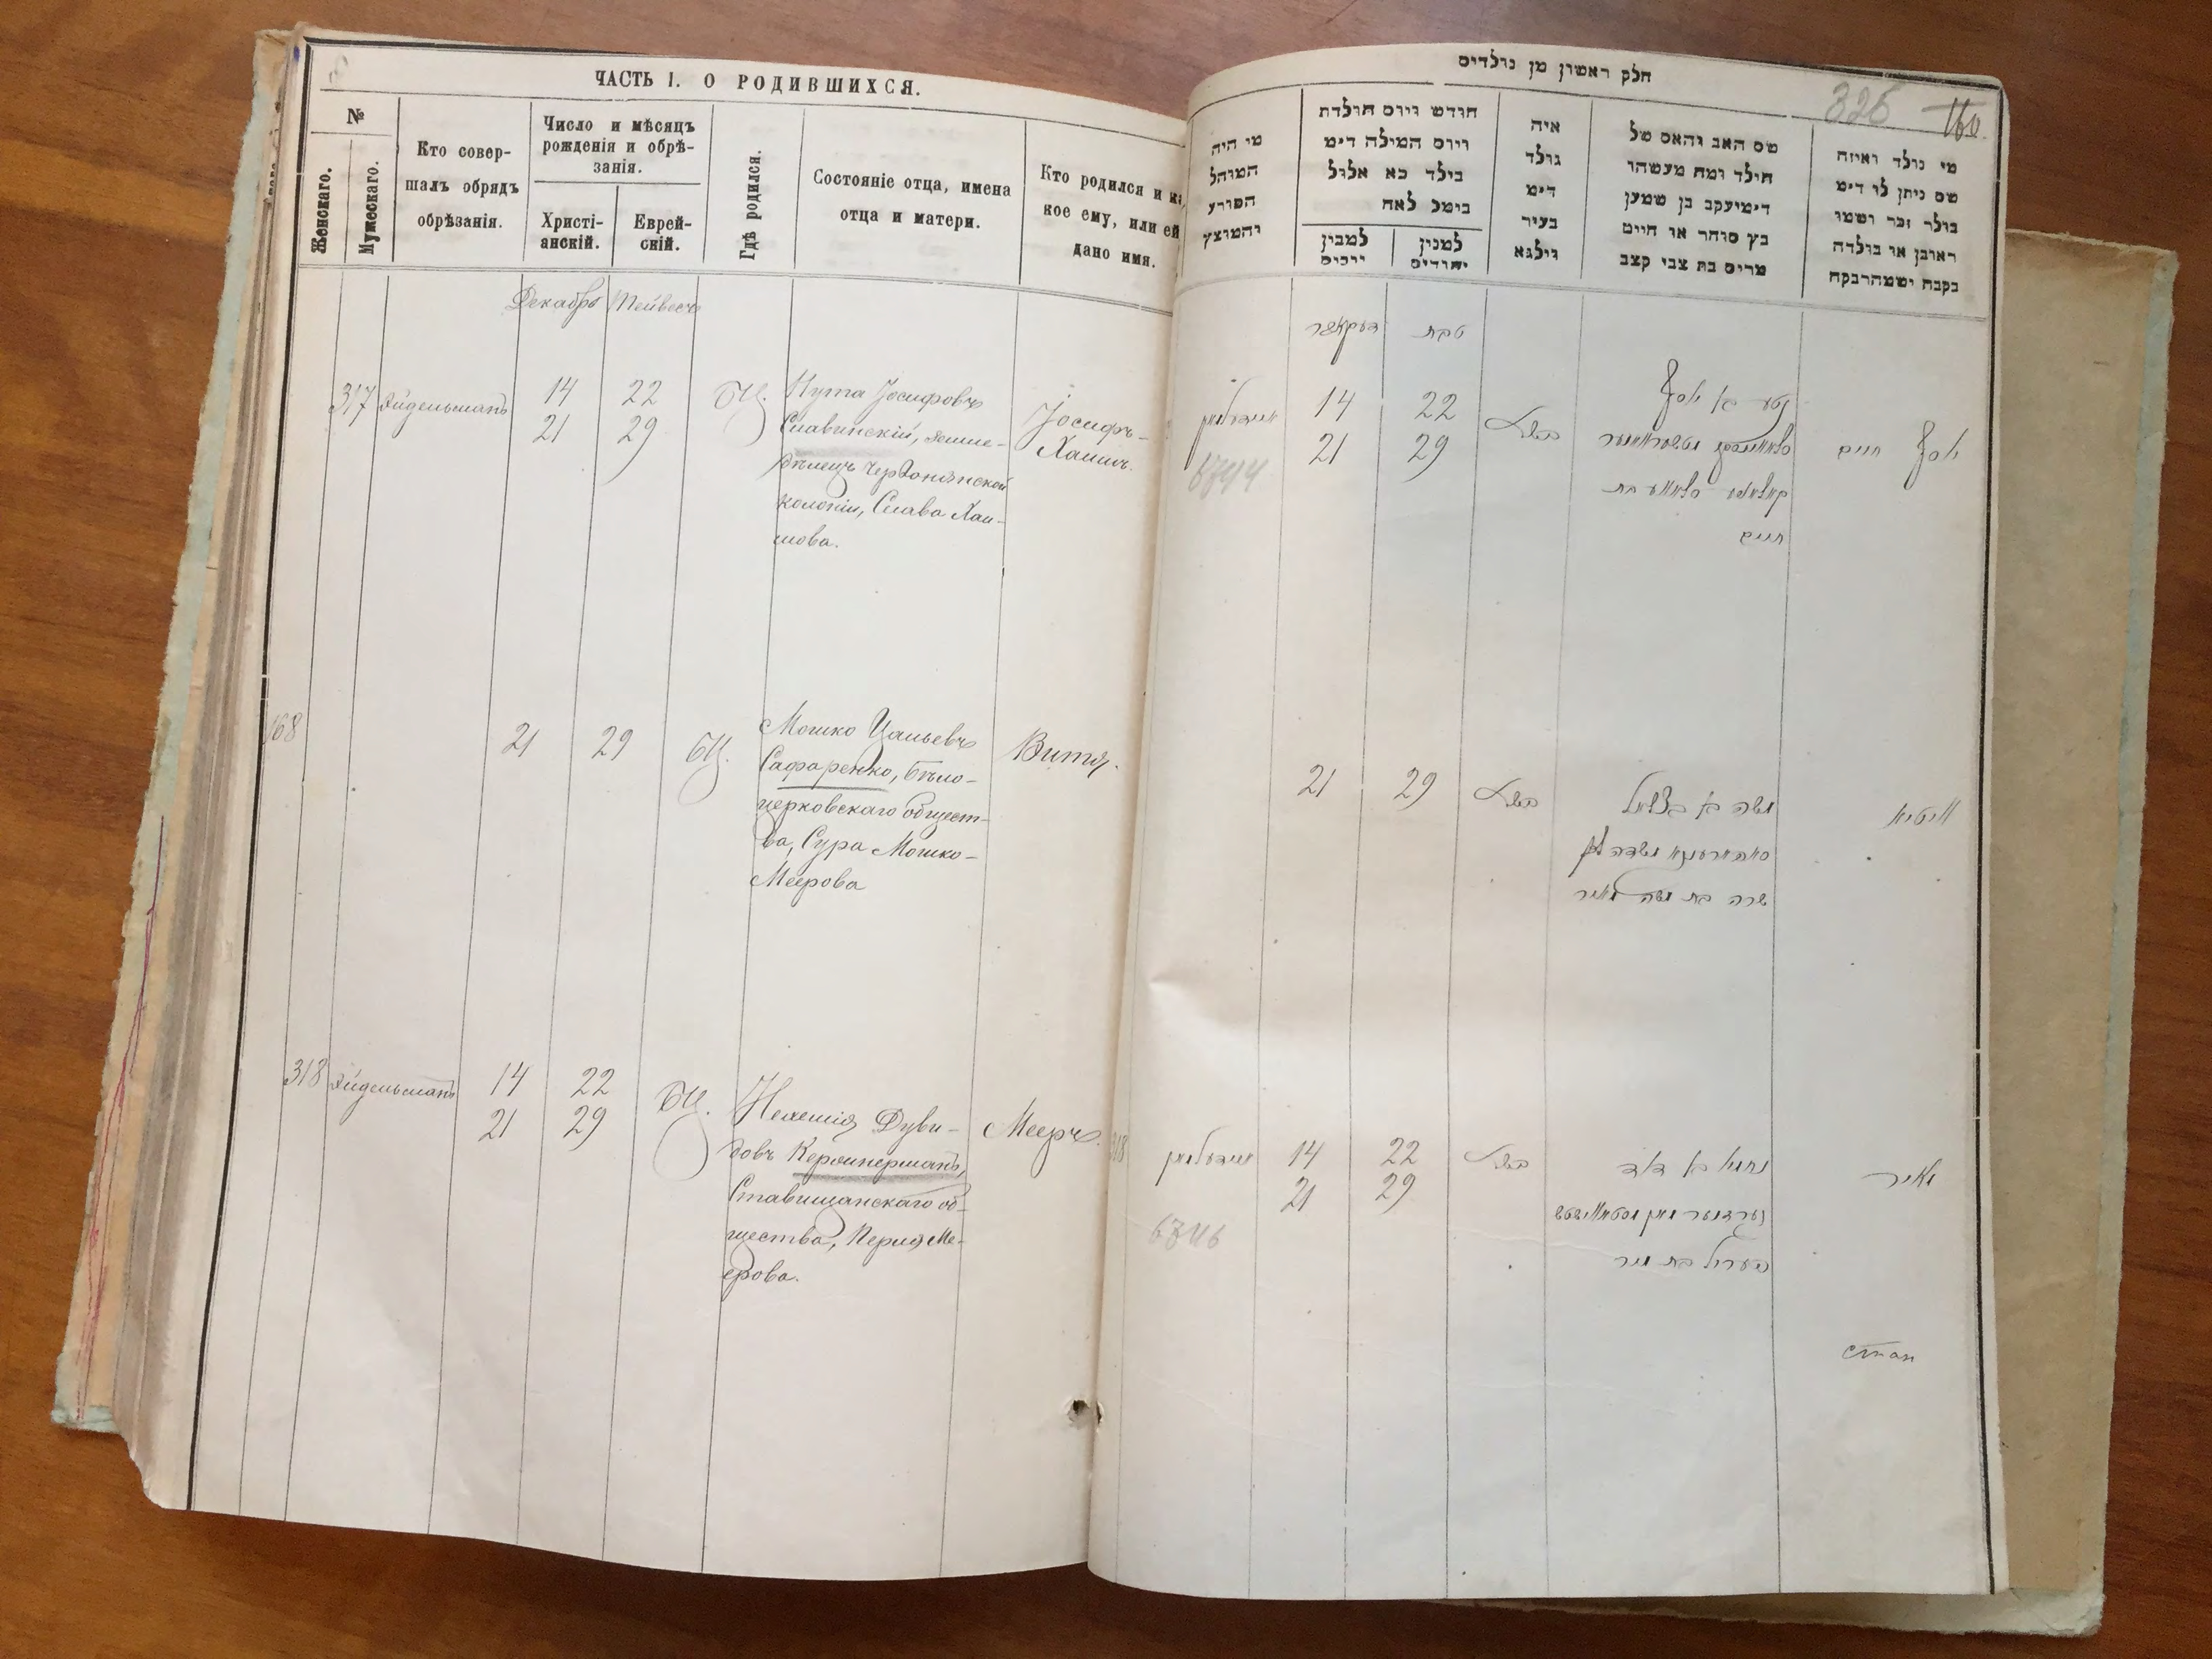 ЧАСТЬ I. О РОДИВШИХСЯ.
№
Женскаго.
Мужескаго.
Кто совер-
шалъ обрядъ
обрѣзанія.
Число и мѣсяцъ
рожденія и обрѣ-
занія.
Христі-
анскій.
Еврей-
скій.
Гдѣ родился.
Состояніе отца, имена
отца и матери.
Кто родился и ка
кое ему, или ей
дано имя.
Декабрь Тейвесъ
317 Эйдельманъ 14 22 БЦ.
21 29
Нута Іосифовъ
Славинскій, земле-
дѣлецъ Червонянской
колоніи, Слава Хаи-
мова.
Іосифъ-
Хаимъ.
168 21 29 БЦ.
Мошко Цальевъ
Сафаренко, Бѣло-
церковскаго общест-
ва, Сура Мошко-
Меерова
Витя.
318 Эйдельманъ 14 22 БЦ.
21 29
Нехемія Дуви-
довъ Керзнерманъ,
Ставищанскаго об-
щества, Перля Ме-
ерова.
Мееръ.
חלק ראשון מן נולדים
326 160
מי היה
המוהל
הפורע
והמוצץ
חודש ויום תולדת
ויום המילה דימ
בילד כא אלול
נימל לאח
למנין
יהודים
איה
נולד
דימ
בעיר
ווילנא
שם האב והאם של
הילד ומה מעשהו
דימיעקב בן שמען
כץ סוחר או חיים
מרים בת צבי קצב
מי נולד ואיזה
שם ניתן לו דימ
נולד זכר ושמו
ראובן או נולדה
נקבה ושמהרבקה
דעקאבר טבת
אײדעלמאן 14 22
21 29
נטע בן יוסף
חיים
יוסף חיים
6744
21 29
משה בן בצלאל
שרה בת משה מאיר
וויטיא
318 אײדעלמאן 14 22
21 29
נחמיא בן דוד
פערל בת מאיר
מאיר
6746